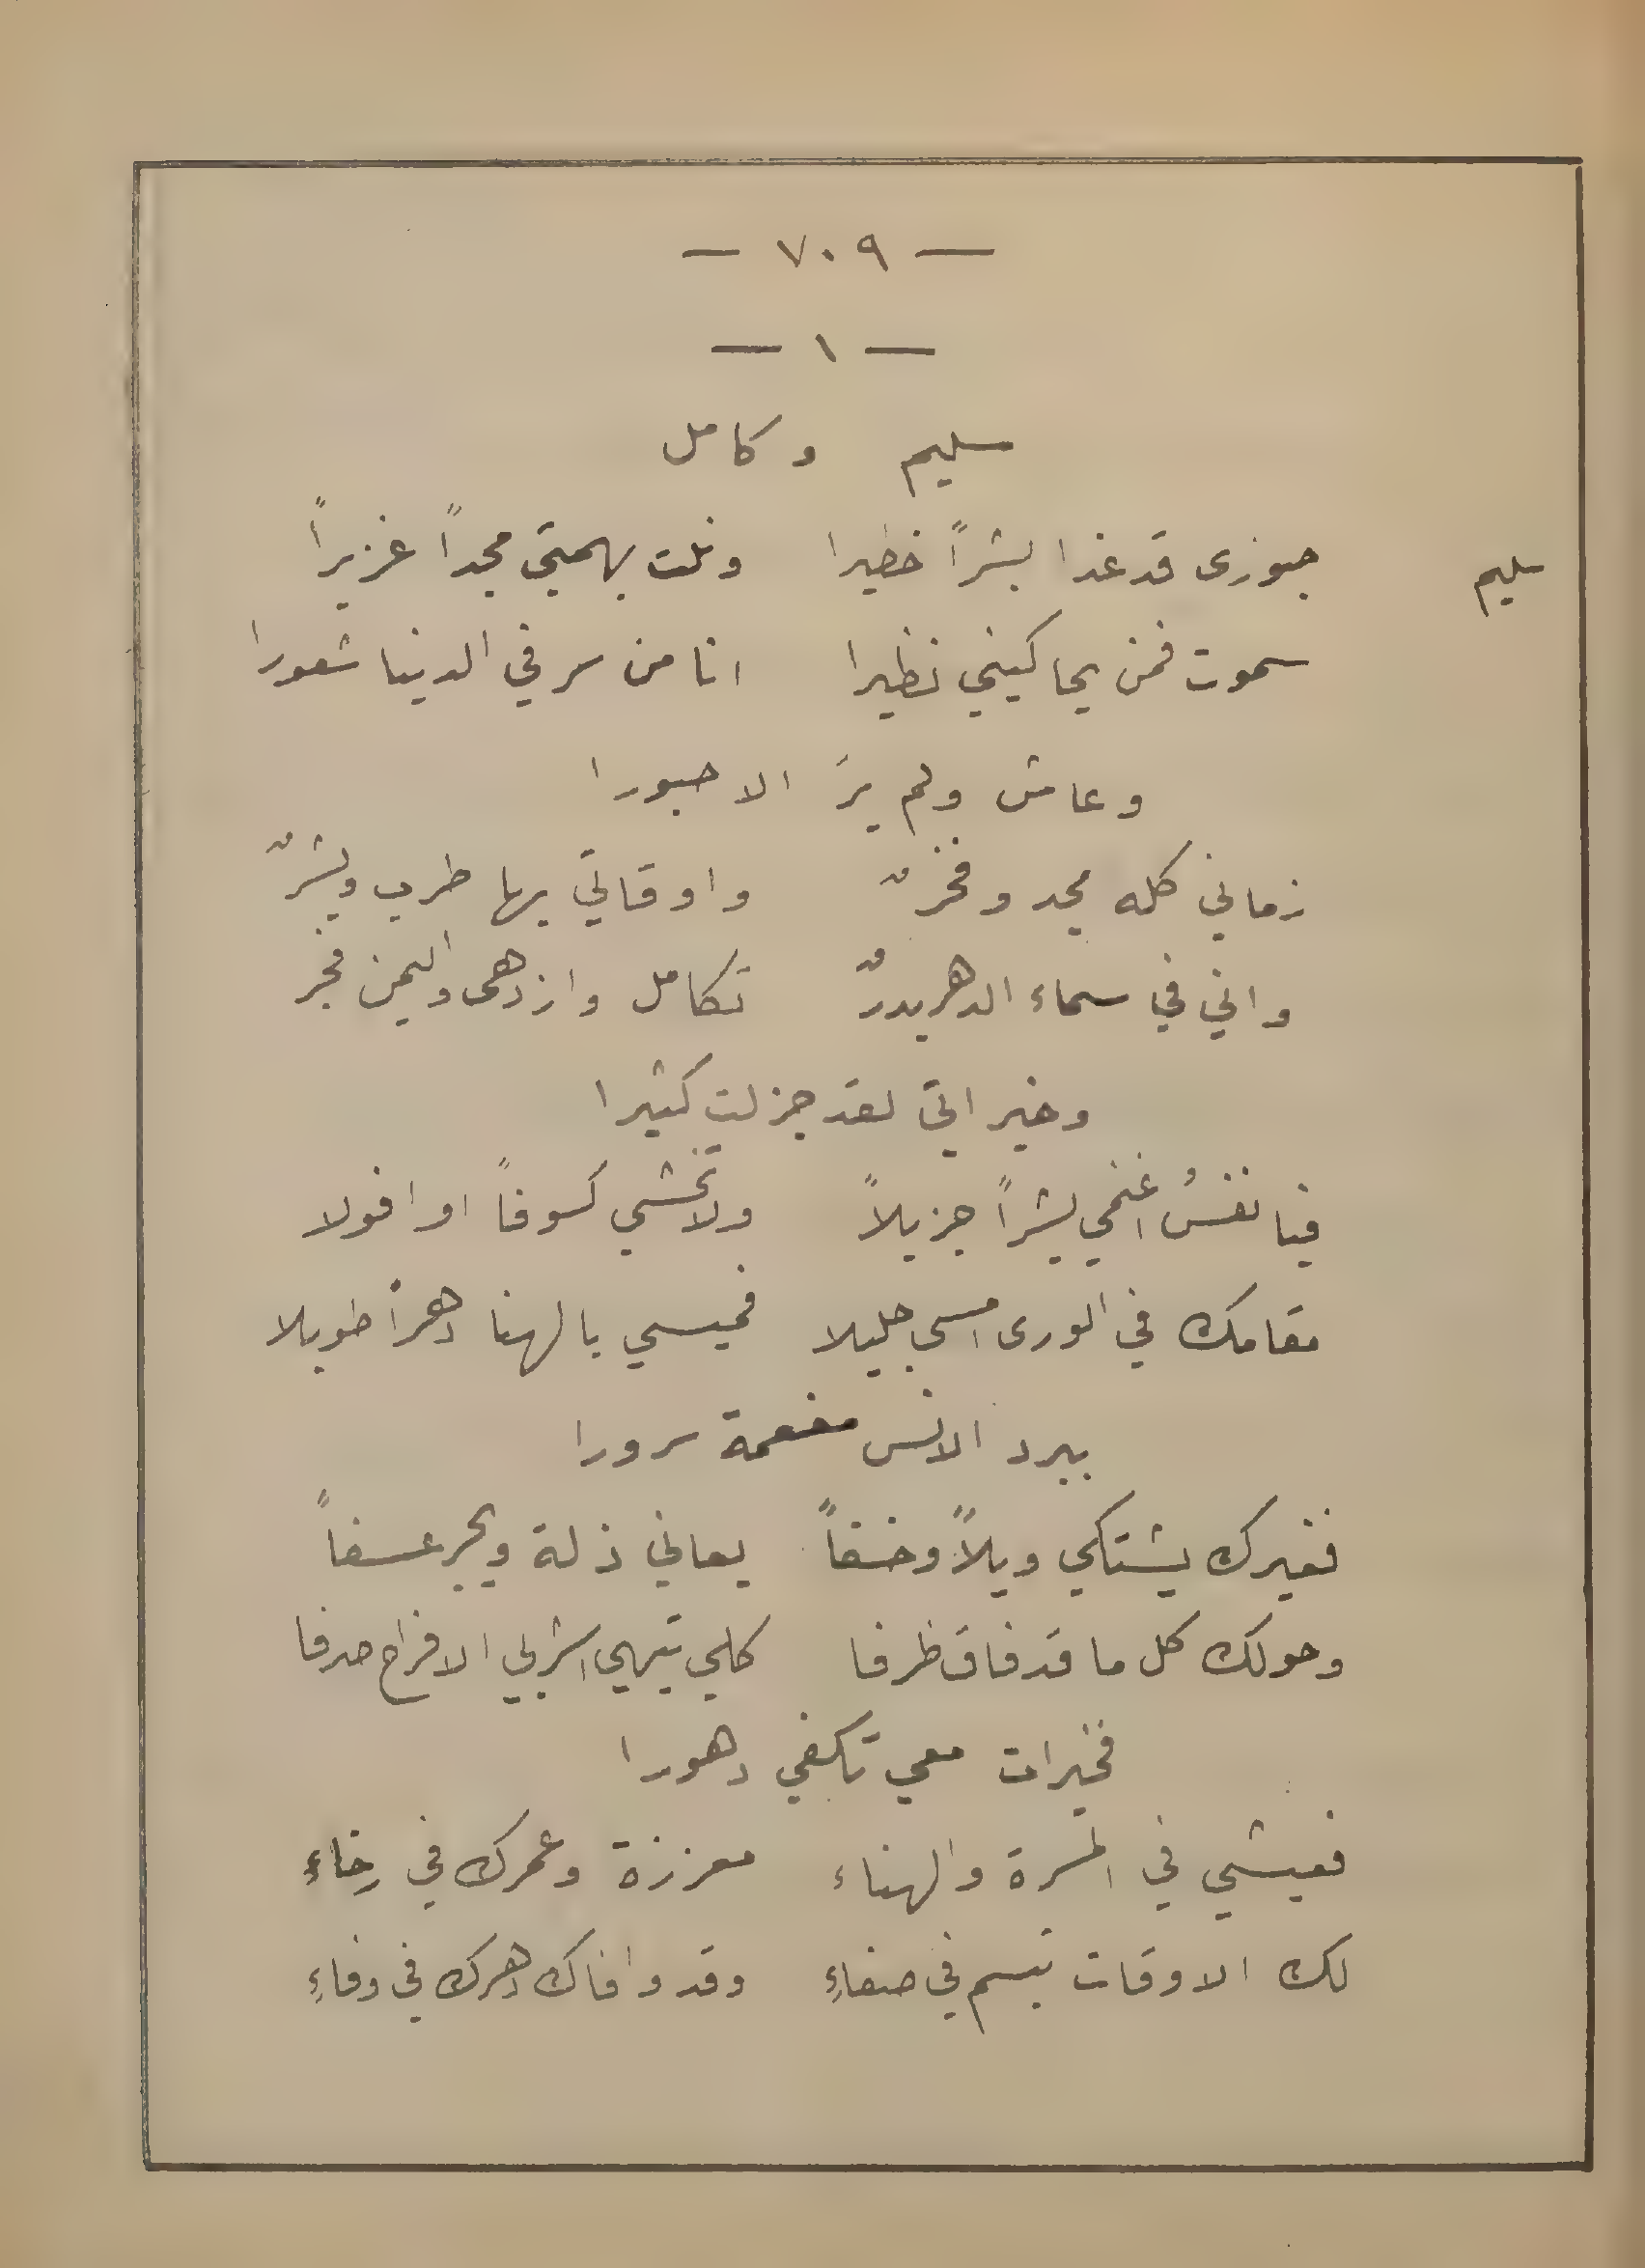 — ٧٠٩ —
— ١ —
سليم وكامل
سليم جبوزى قد غدا بشراً خطيرا ونلت بهمتي مجداً غزيراً
سموت فمن يحاكيني نظيرا انا من سر في الدينا شعورا
وعاش ولم يرَ الا حبورا
زماني كله مجد وفخرٌ واوقاتي بها طرب وبشرٌ
واني في سماء الدهر بدرٌ تكامل وازدهى واليمن فجر
وخيراتي لقد جزلت كثيرا
فيا نفسُ اغنمي بشراً جزيلاً ولا تخشي كسوفاً او افولا
مقامك في الورى امسى جليلا فميسي بالهنا دهراً طويلا
ببرد الانس مفعمة سرورا
فغيرك يشتكي ويلاً وخسفاً يعاني ذلة ويجر عسفاً
وحولك كل ما قد فاق ظرفا كلي تيهي اشربي الافراح صرفا
فخيرات معي تكفي دهورا
فعيشي في المسرة والهناء معززة وعمرك في رخاء
لك الاوقات تبسم في صفاءِ وقد وافاك دهرك في وفاءِ